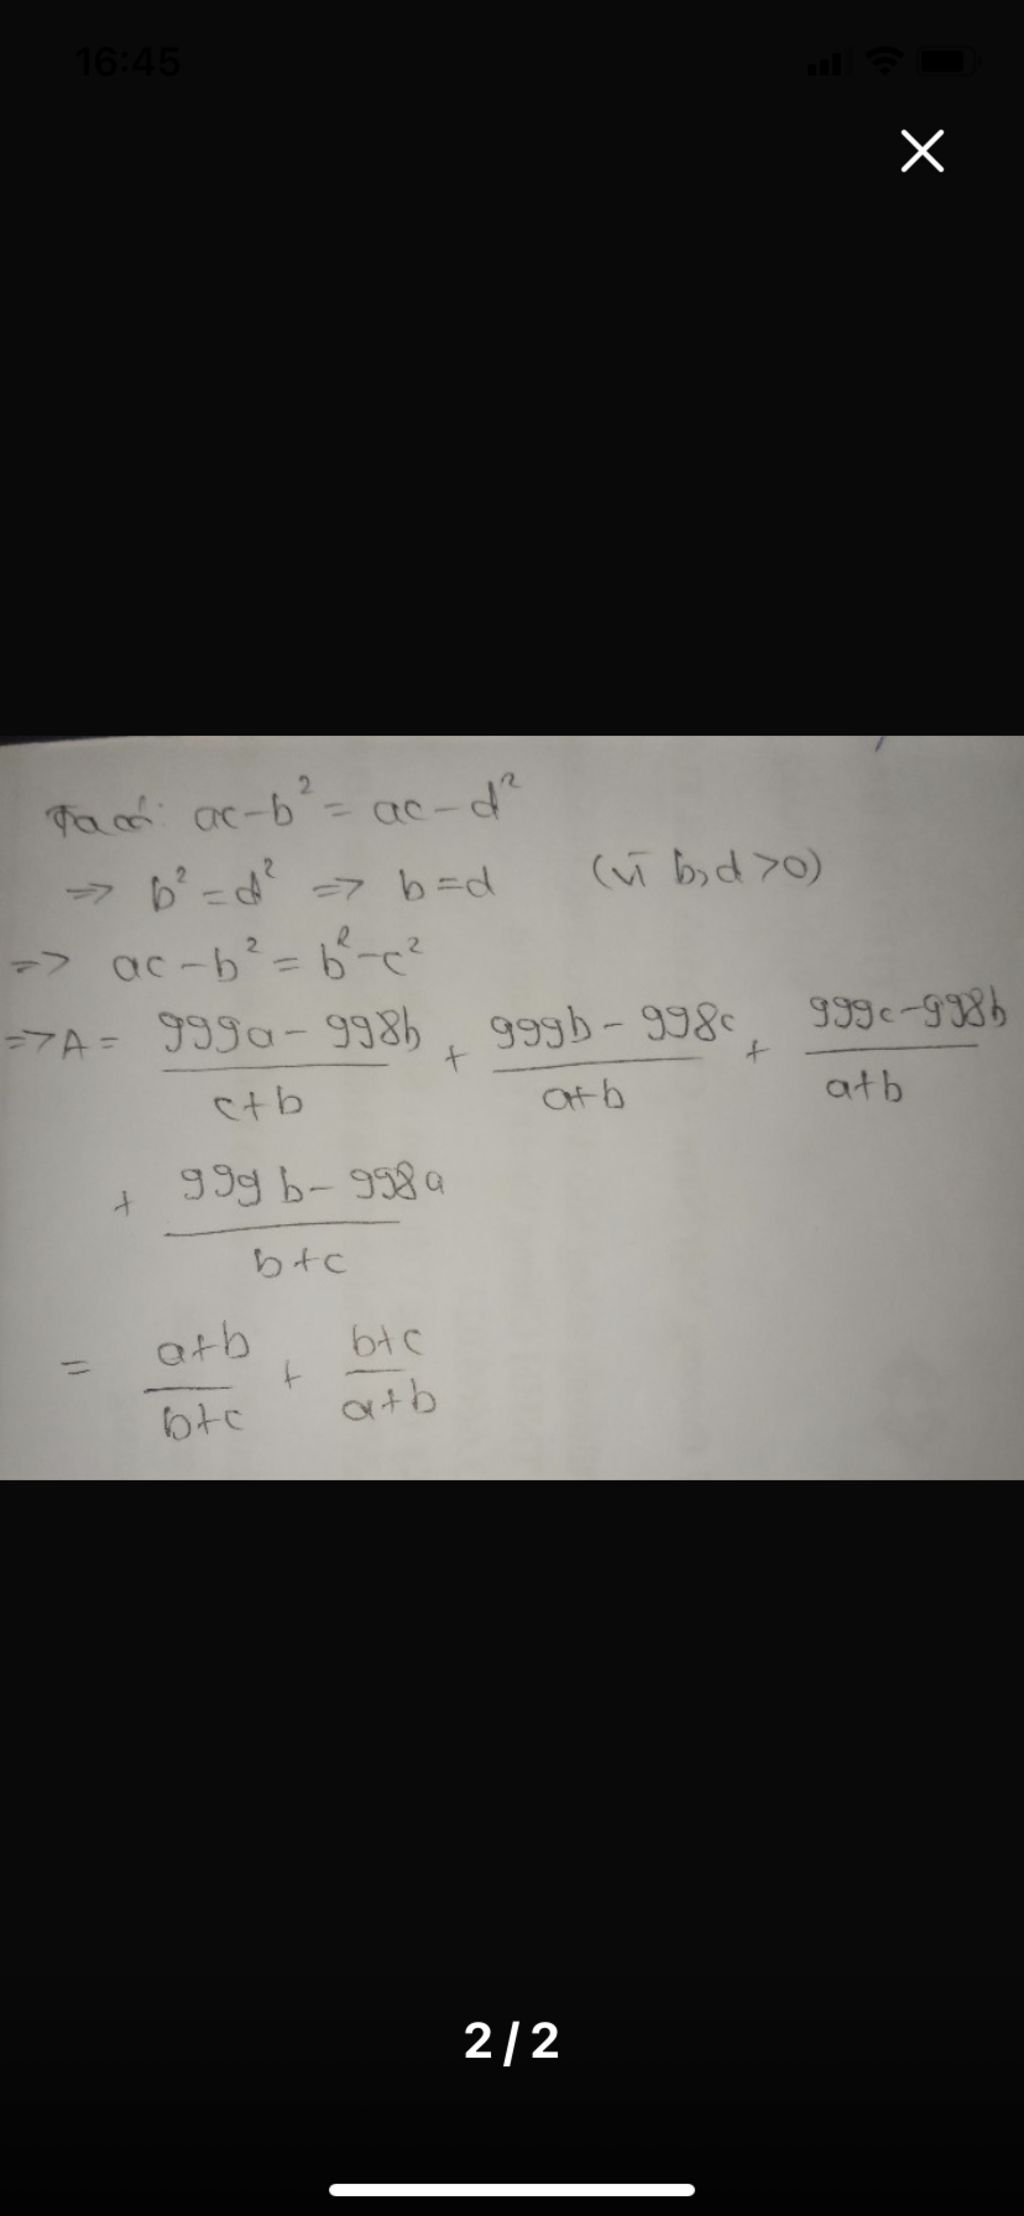 16:45
Ta có: ac-b² = ac-d²
=> b² = d² => b=d (vì b,d>0)
=> ac-b² = b²-c²
=> A = (999a - 998b)/(c+b) + (999b - 998c)/(a+b) + (999c-998b)/(a+b)
+ (999b - 998a)/(b+c)
= (a+b)/(b+c) + (b+c)/(a+b)
2/2